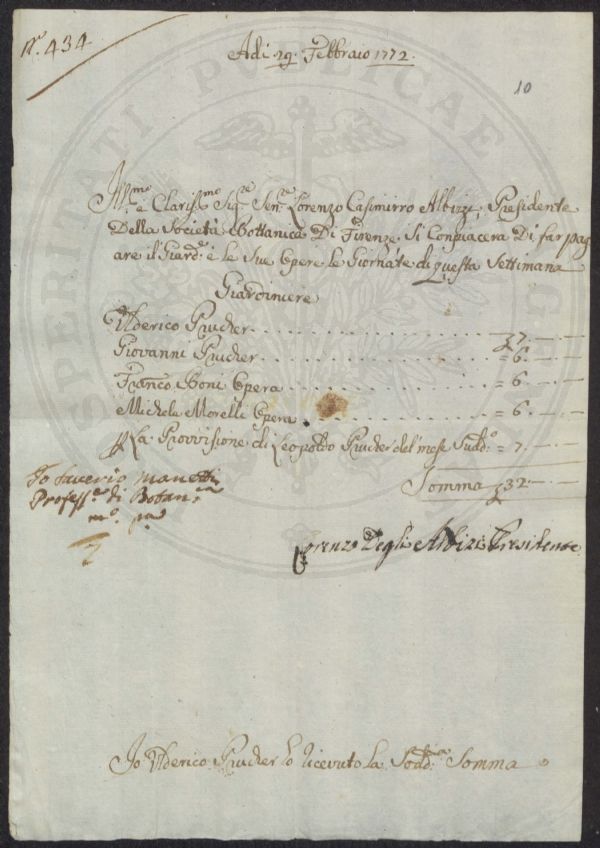 N.º 434
Adi 29. Febbraio 1772.
10
Ill.mo e Clariss.mo Sig.re Sen.re Lorenzo Casimirro Albizzi, Presidente
Della Società Bottanica Di Firenze, Si Conpiacera Di far pag
are il Giard.e è le Sue Opere le Giornate di questa Settimana
Giardiniere
Ulderico Prucher . . . . . . . . . . . . 7.—.—
Giovanni Prucher . . . . . . . . . . . = 6.—.—
Franco Boni Opera . . . . . . . . . . = 6.—.—
Michele Morelli Opera . . . . . . . . = 6.—.—
p La Provvisione di Leopoldo Prucher del mese Sud.o = 7.—.—
Somma 32.—.—
Io Saverio Manetti
Profess.e di Botan.ca
m.o p.a
Lorenzo Degli Albizi Presidente
Io Ulderico Prucher ho ricevuto La Sodd.a Somma
PROSPERITATI PUBLICAE